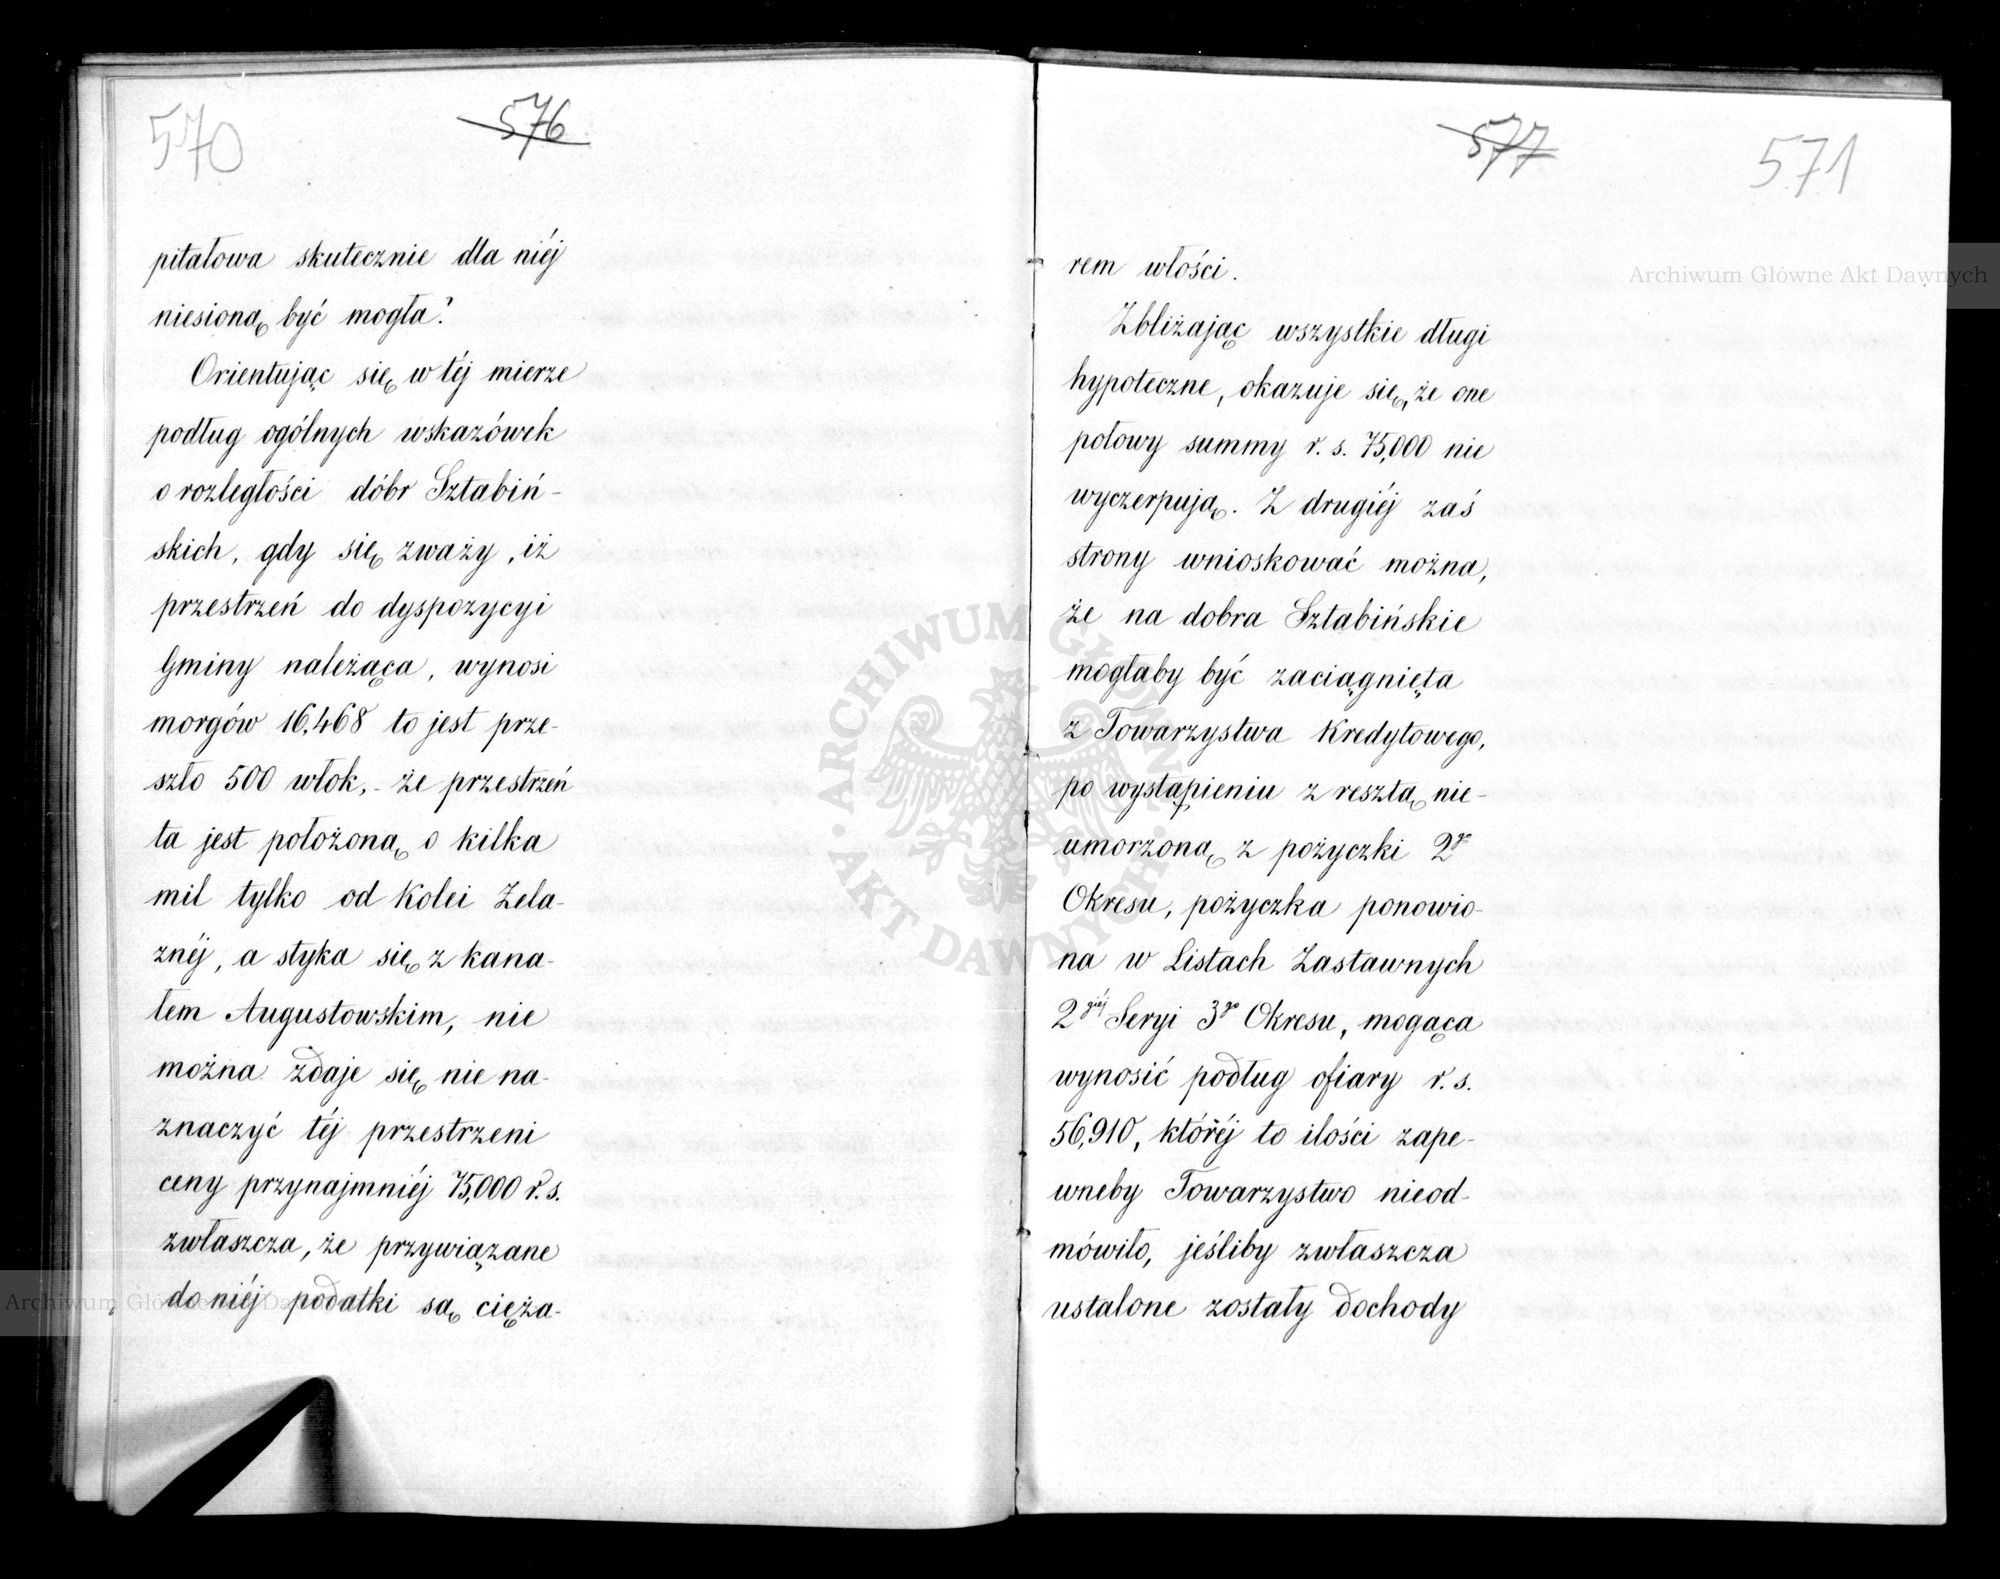 570
576
pitałowa skutecznie dla niéj
niesioną być mogła?
Orientując się w téj mierze
podług ogólnych wskazówek
o rozległości dóbr Sztabiń-
skich, gdy się zważy, iż
przestrzeń do dyspozycyi
Gminy należąca, wynosi
morgów 16,468 to jest prze-
szło 500 włók, - że przestrzeń
ta jest położoną o kilka
mil tylko od Kolei Żela-
znéj, a styka się z kana-
łem Augustowskim, nie
można zdaje się nie na-
znaczyć téj przestrzeni
ceny przynajmniéj 75,000 r. s.
zwłaszcza, że przywiązane
do niéj podatki są cięża-
577
571
rem włości.
Zbliżając wszystkie długi
hypoteczne, okazuje się, że one
połowy summy r. s. 75,000 nie
wyczerpują. Z drugiéj zaś
strony wnioskować można,
że na dobra Sztabińskie
mogłaby być zaciągnięta
z Towarzystwa Kredytowego,
po wystąpieniu z resztą nie-
umorzoną z pożyczki 2go
Okresu, pożyczka ponowio-
na w Listach Zastawnych
2giéj Seryi 3go Okresu, mogąca
wynosić podług ofiary r. s.
56,910, któréj to ilości zape-
wneby Towarzystwo nieod-
mówiło, jeśliby zwłaszcza
ustalone zostały dochody
Archiwum Główne Akt Dawnych
ARCHIWUM GŁÓWNE · AKT DAWNYCH ·
Archiwum Główne Akt Dawnych